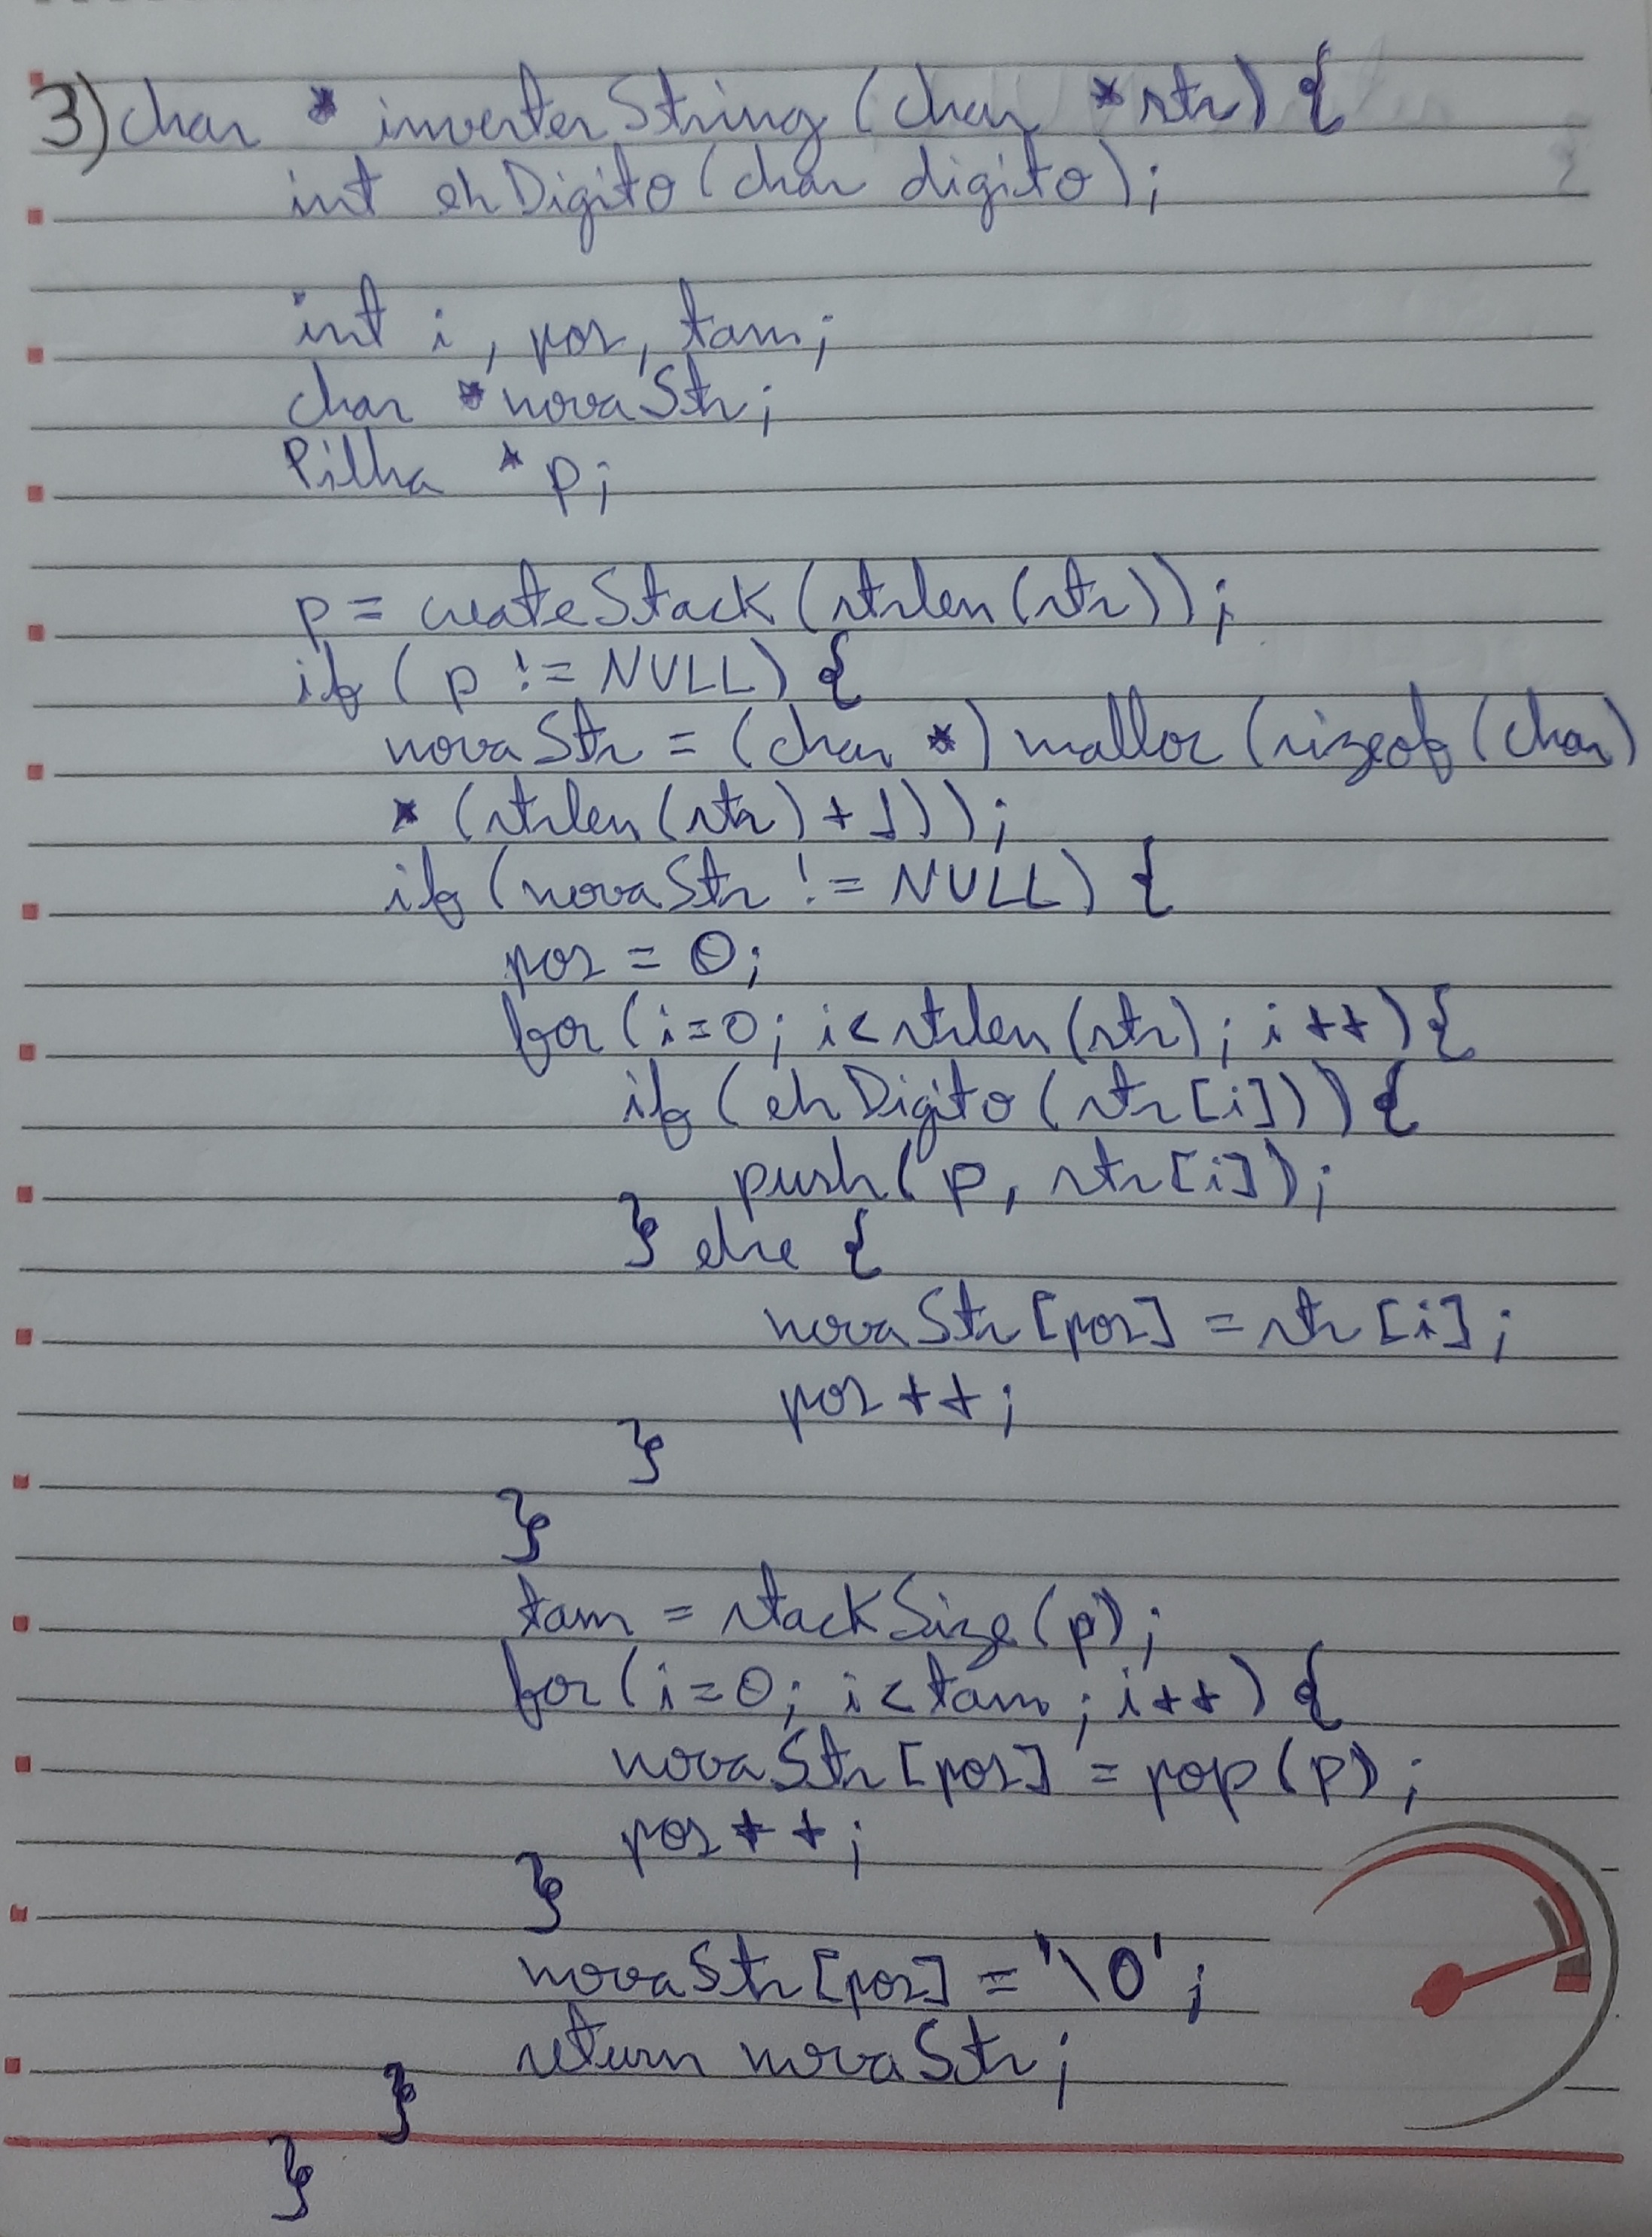 3) char * inverterString (char * str) {
int ehDigito (char digito);
int i, pos, tam;
char * novaStr;
Pilha * p;
p = createStack (strlen (str));
if ( p != NULL) {
novaStr = (char *) malloc (sizeof (char)
* (strlen (str) + 1));
if (novaStr != NULL) {
pos = 0;
for (i=0; i< strlen (str); i ++) {
if (ehDigito (str [i])) {
push( p, str [i]);
} else {
novaStr [pos] = str [i];
pos ++;
}
}
tam = stackSize (p);
for (i=0; i< tam; i++) {
novaStr [pos] = pop (p);
pos ++;
}
novaStr [pos] = '\0';
return novaStr;
}
}